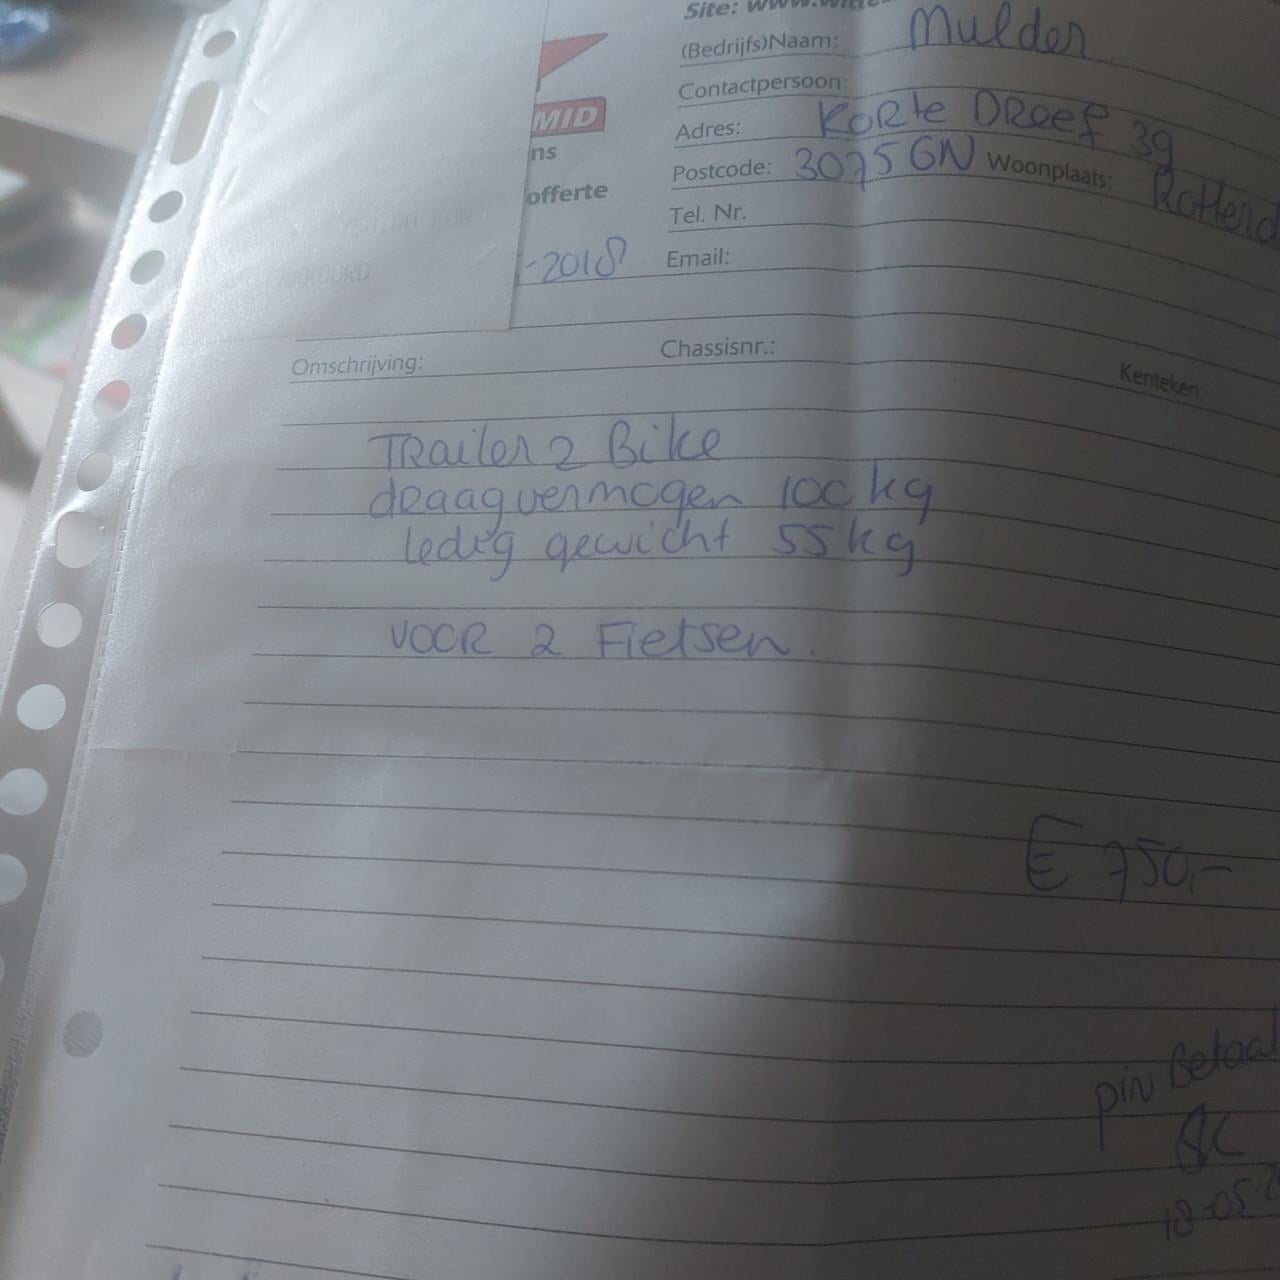 Site: www.witte
(Bedrijfs)Naam: Mulder
Contactpersoon:
Adres: Korte Dreef 39
Postcode: 3075 GN Woonplaats: Rotterd
Tel. Nr.
Email:
MID
ns
offerte
-2018
750,00 EUR
AKKOORD
Omschrijving: Chassisnr.: Kenteken:
Trailer 2 Bike
draagvermogen 100 kg
ledig gewicht 55 kg
voor 2 Fietsen.
€ 750,-
pin Betaal
18-05-